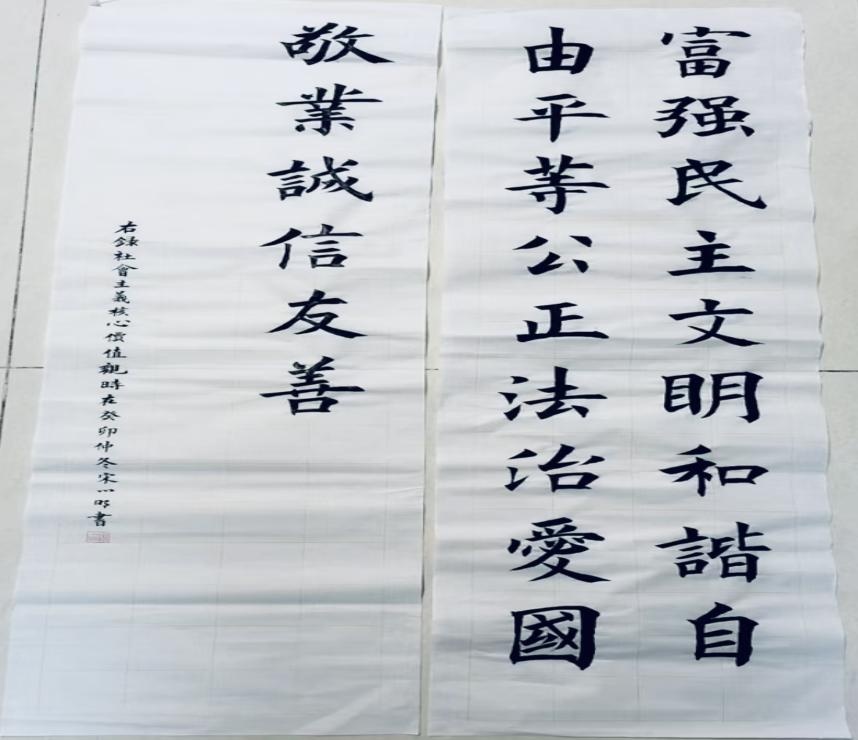 富强民主文明和諧自
由平等公正法治愛國
敬業誠信友善
右録社會主義核心價值觀時在癸卯仲冬宋小明書